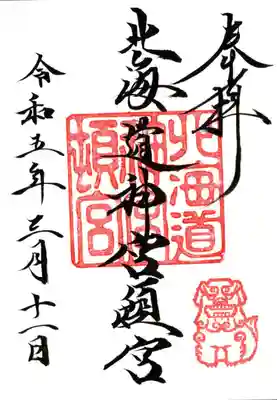 奉拝
北海道神宮頓宮
北海道神宮頓宮
令和五年三月十一日